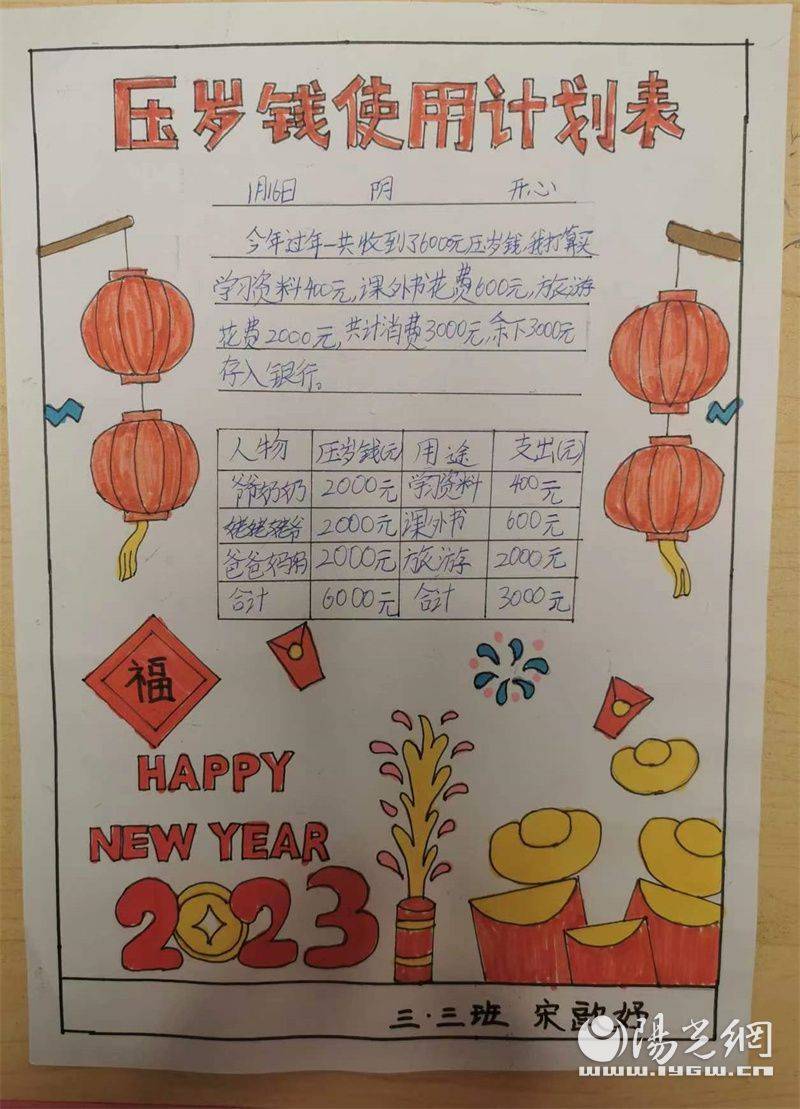 压岁钱使用计划表
1月16日 阴 开心
今年过年一共收到了6000元压岁钱,我打算买
学习资料400元,课外书花费600元,旅游
花费2000元,共计消费3000元,余下3000元
存入银行。
人物 压岁钱(元) 用途 支出(元)
爷爷奶奶 2000元 学习资料 400元
姥姥姥爷 2000元 课外书 600元
爸爸妈妈 2000元 旅游 2000元
合计 6000元 合计 3000元
福
HAPPY
NEW YEAR
2023
三·三班 宋歆妤
陽光網
www.iygw.cn